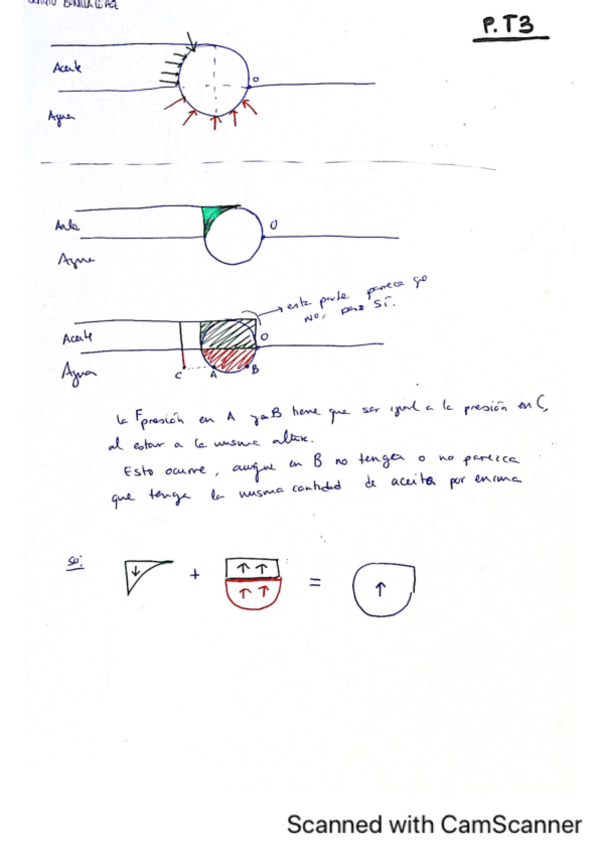 P.T3
Aceite
Agua
O
Aceite
O
Agua
esta parte parece que
NO, pero SÍ.
Aceite
O
Agua
C A B
la Fpresión en A y a B tiene que ser igual a la presión en C,
al estar a la misma altura.
Esto ocurre, aunque en B no tenga o no parezca
que tenga la misma cantidad de aceite por encima
+ =
Scanned with CamScanner